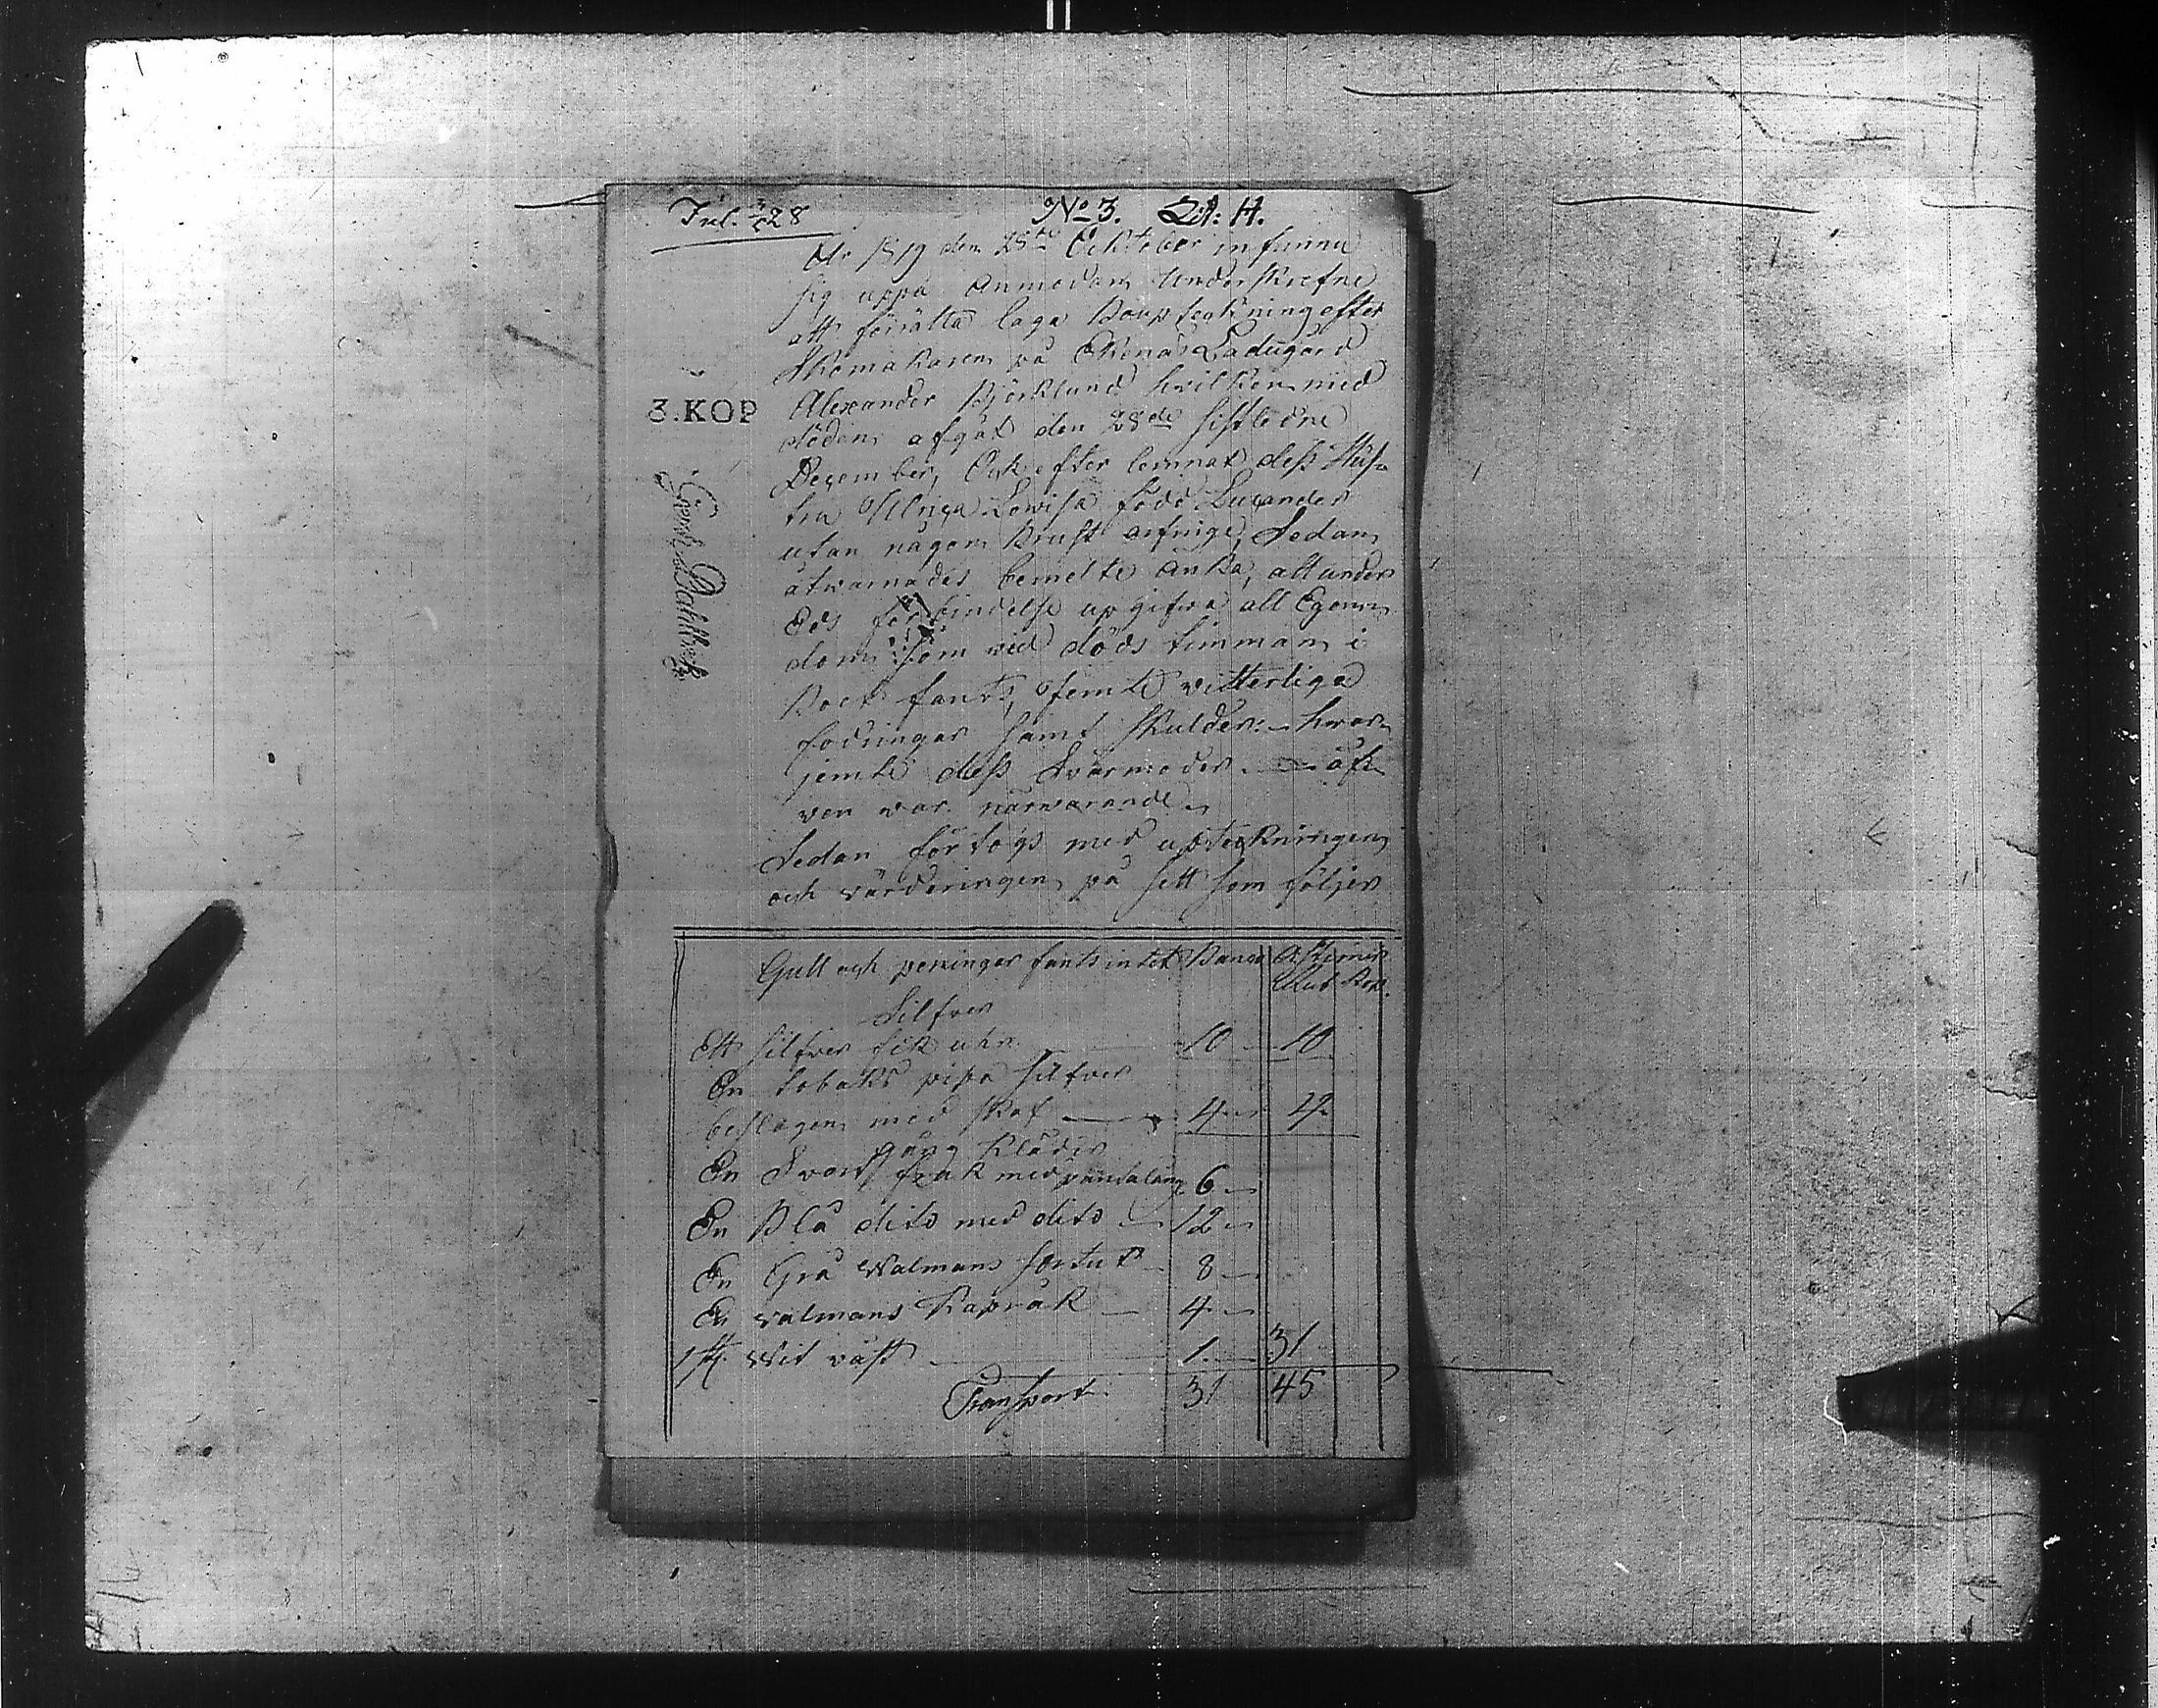 Inl. 2/2 28
No 3. Litt: H.
År 1819 den 28de Ocktober infunno
sig uppå anmodan underskrefne
att förrätta laga Bouptekning efter
Skomakaren på Ekenäs Ladugård
Alexander Björklund hvilken med
döden afgåt den 28de sistledne
December, Och efter lemnat dess Hus=
tru Ulrica Lovisa född Lucander
utan någon Brust arfvinge, Sedan
åtvarnades bemelte änka, att under
Eds förbindelse upgifva all Egen=
dom som vid döds timman i
Boet fants, jemte vitterliga
fodringar samt skulder: hvar=
jemte dess Svärmoder äf=
ven var närvarande
Sedan förtogs med upteckningen
och värderingen på sett som följer
3. KOP
Gull och peningar fants intet Banco A Stimer
Rub Kop.
Silfver
Ett silfver fik uhr 10 10
En tobaks pipa silfver
beslagen med skaf 4 4
gång Kläder
En Svart frak med pantalong 6
En Blå dito med dito 12
En Grå Walmans sortut 8
En valmans Kapråk 4
1 st. Wit väst 1 31
Transport 31 45